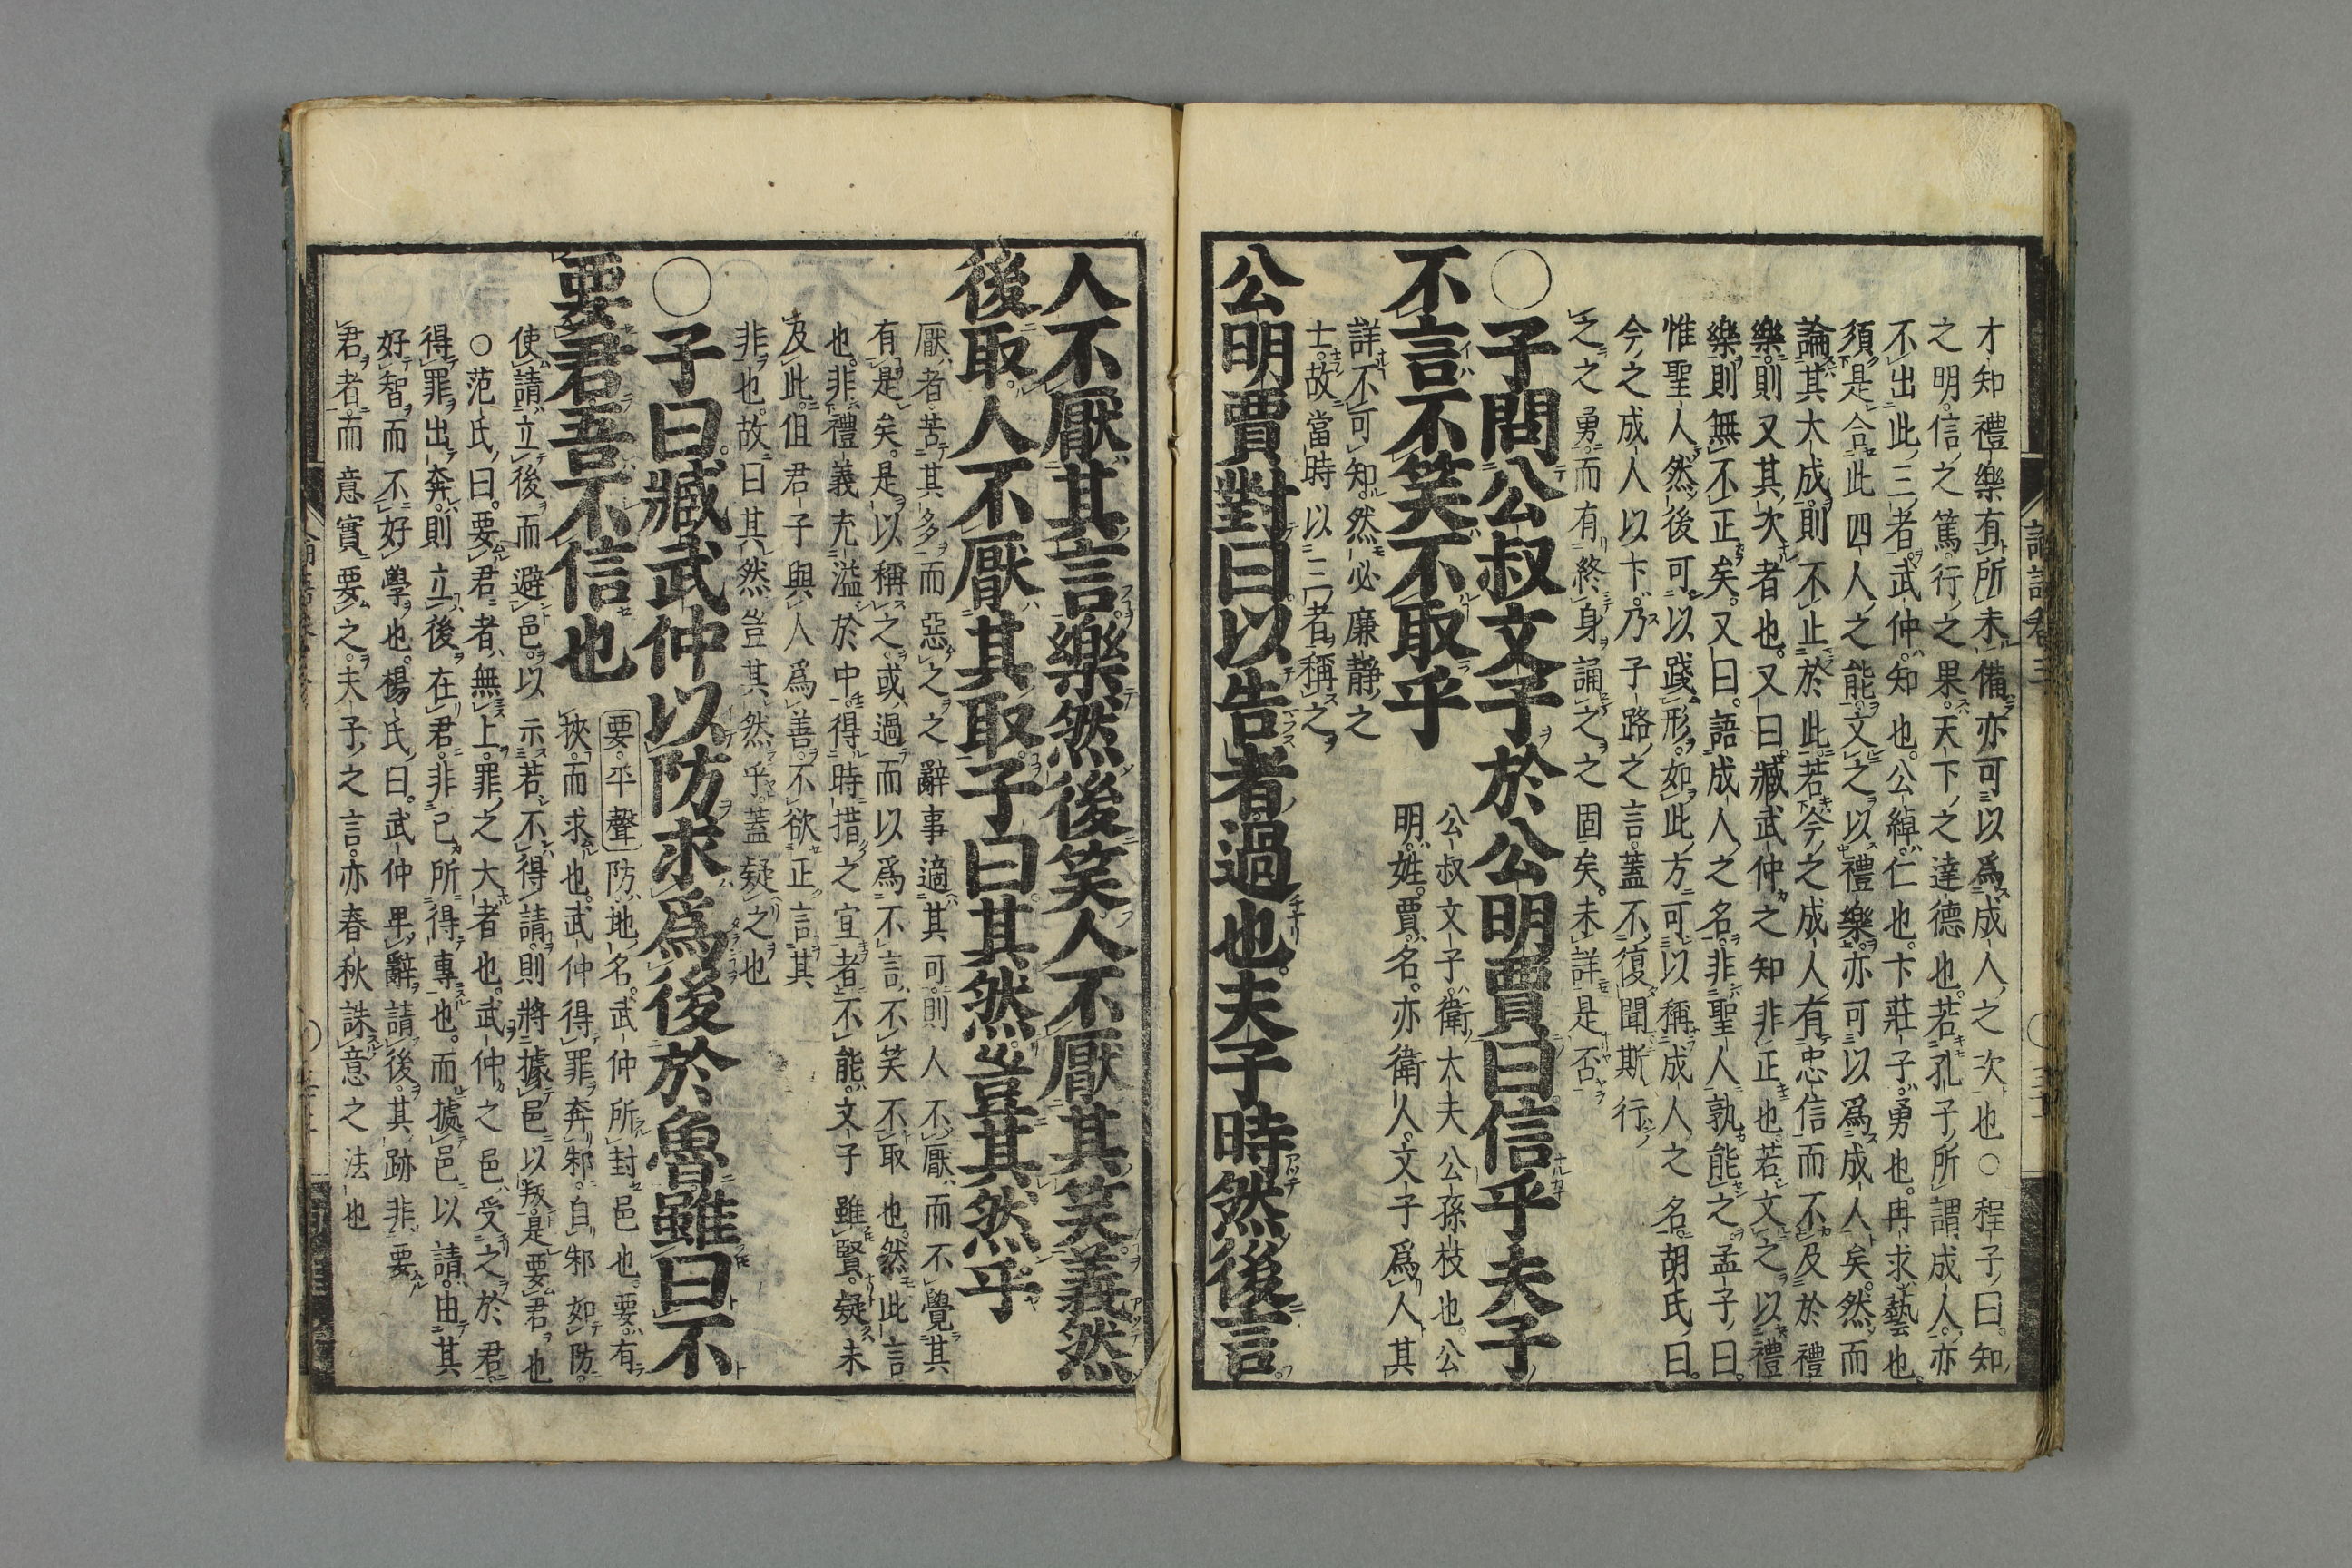 才知禮樂有所未備亦可以爲成人之次也○程子曰知
之明信之篤行之果天下之達德也若孔子所謂成人亦
不出此三者武仲知也公綽仁也卞莊子勇也冉求藝也
須是合此四人之能文之以禮樂亦可以爲成人矣然而
論其大成則不止於此若今之成人有忠信而不及於禮
樂則又其次者也又曰臧武仲之知非正也若文之以禮
樂則無不正矣又曰語成人之名非聖人孰能之孟子曰
惟聖人然後可以踐形如此方可以稱成人之名胡氏曰
今之成人以下乃子路之言蓋不復聞斯行
之之勇而有終身誦之之固矣未詳是否
○子問公叔文子於公明賈曰信乎夫子
不言不笑不取乎
公叔文子衛大夫公孫枝也公
明姓賈名亦衛人文子爲人其
詳不可知然必廉靜之
士故當時以三者稱之
公明賈對曰以告者過也夫子時然後言
人不厭其言樂然後笑人不厭其笑義然
後取人不厭其取子曰其然豈其然乎
厭者苦其多而惡之之辭事適其可則人不厭而不覺其
有是矣是以稱之或過而以爲不言不笑不取也然此言
也非禮義充溢於中得時措之宜者不能文子雖賢疑未
及此但君子與人爲善不欲正言其
非也故曰其然豈其然乎蓋疑之也
○子曰臧武仲以防求爲後於魯雖曰不
要君吾不信也
要平聲防地名武仲所封邑也要有
挾而求也武仲得罪奔邾自邾如防
使請立後而避邑以示若不得請則將據邑以叛是要君也
○范氏曰要君者無上罪之大者也武仲之邑受之於君
得罪出奔則立後在君非己所得專也而據邑以請由其
好智而不好學也楊氏曰武仲卑辭請後其跡非要
君者而意實要之夫子之言亦春秋誅意之法也